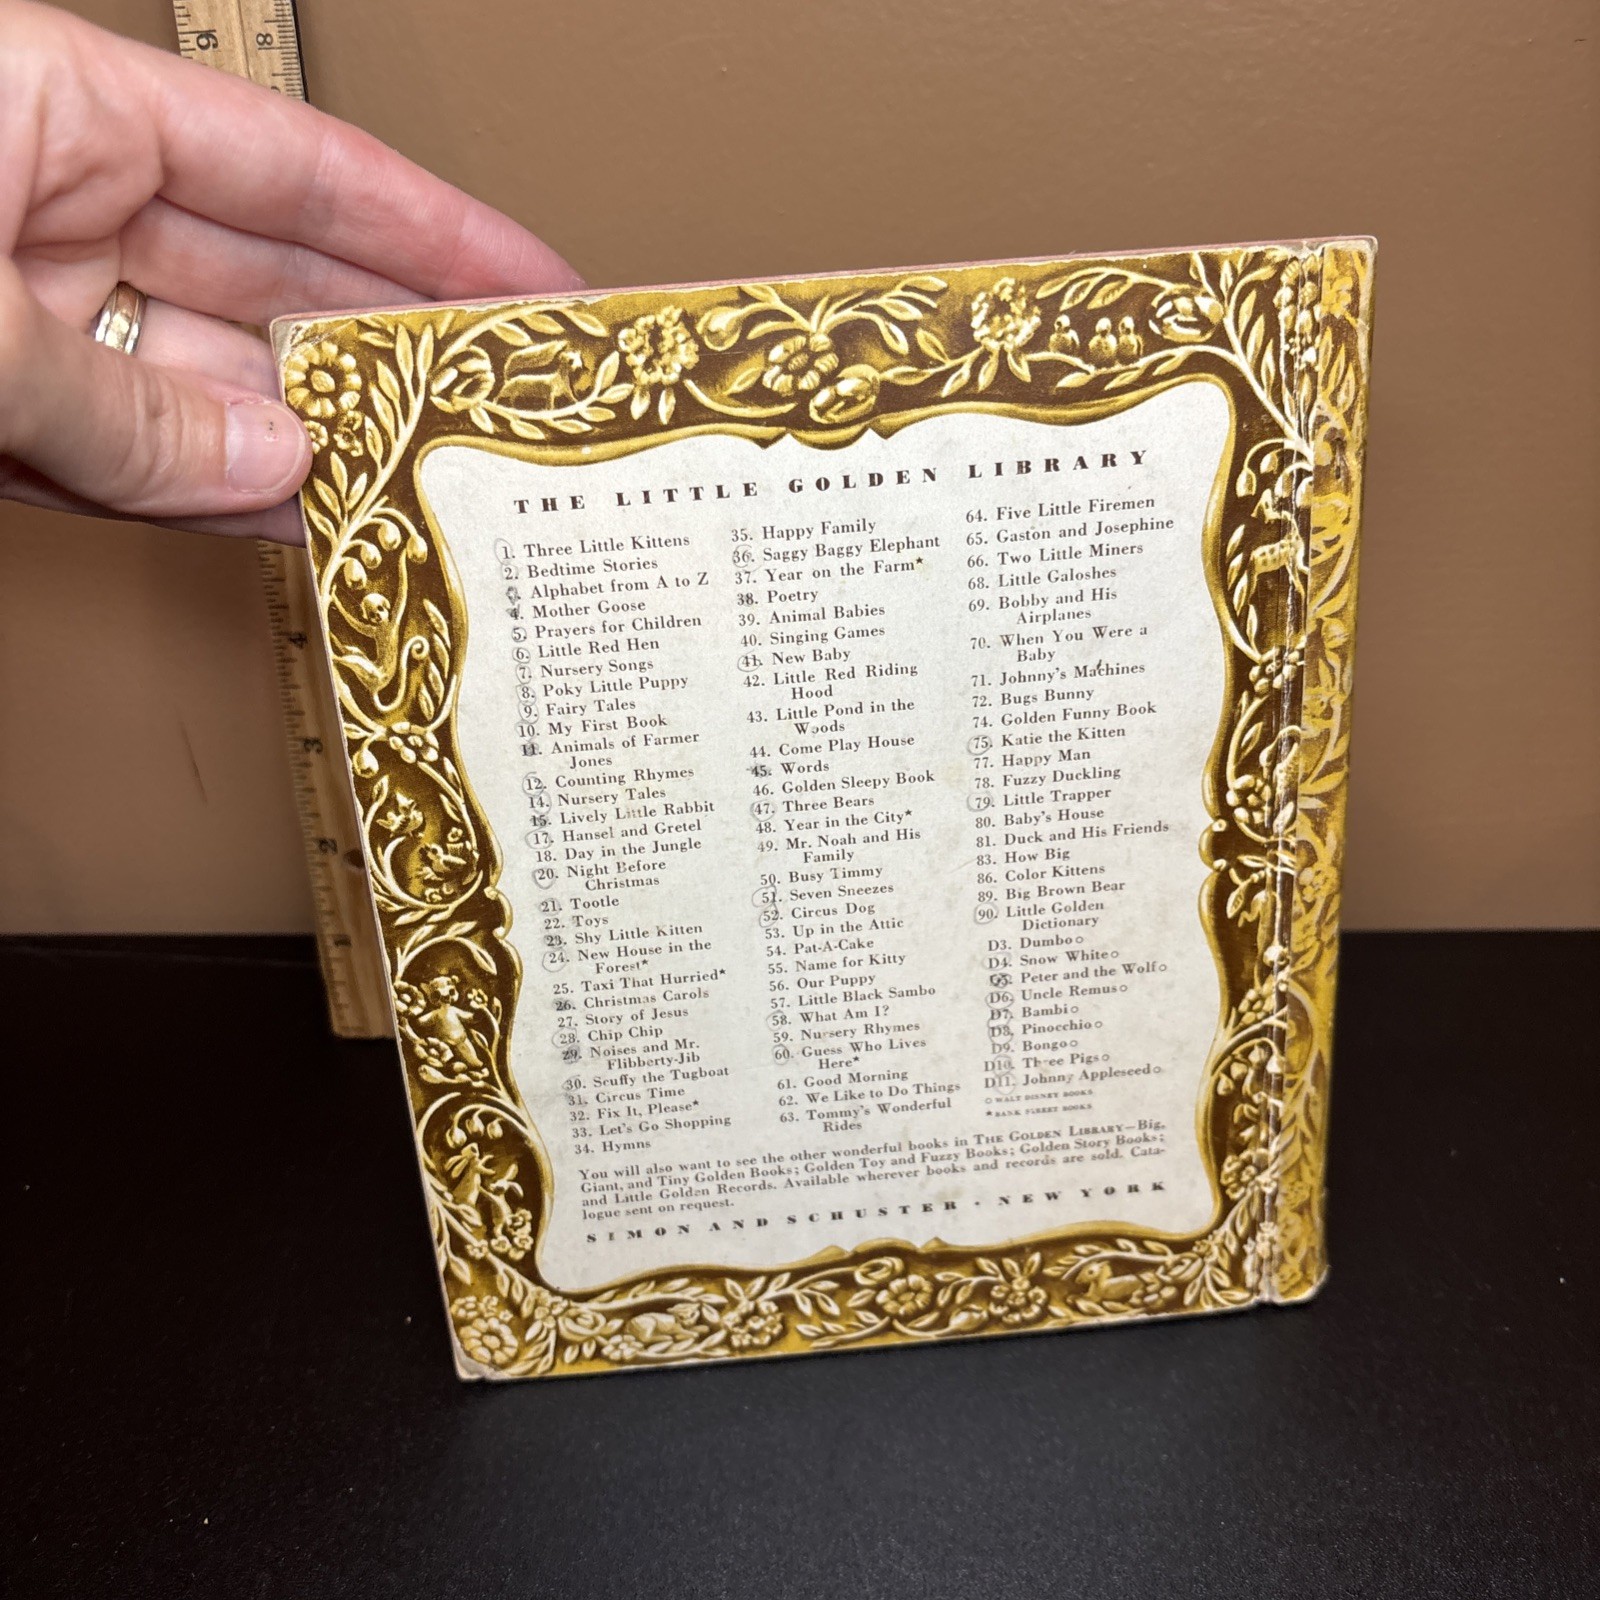 THE LITTLE GOLDEN LIBRARY
1. Three Little Kittens
2. Bedtime Stories
Alphabet from A to Z
4. Mother Goose
5. Prayers for Children
6. Little Red Hen
7. Nursery Songs
8. Poky Little Puppy
9. Fairy Tales
10. My First Book
11. Animals of Farmer
Jones
12. Counting Rhymes
14. Nursery Tales
15. Lively Little Rabbit
17. Hansel and Gretel
18. Day in the Jungle
20. Night Before
Christmas
21. Tootle
22. Toys
23. Shy Little Kitten
24. New House in the
Forest*
25. Taxi That Hurried*
26. Christmas Carols
27. Story of Jesus
28. Chip Chip
29. Noises and Mr.
Flibberty-Jib
30. Scuffy the Tugboat
31. Circus Time
32. Fix It, Please*
33. Let's Go Shopping
34. Hymns
35. Happy Family
36. Saggy Baggy Elephant
37. Year on the Farm*
38. Poetry
39. Animal Babies
40. Singing Games
41. New Baby
42. Little Red Riding
Hood
43. Little Pond in the
Woods
44. Come Play House
45. Words
46. Golden Sleepy Book
47. Three Bears
48. Year in the City*
49. Mr. Noah and His
Family
50. Busy Timmy
51. Seven Sneezes
52. Circus Dog
53. Up in the Attic
54. Pat-A-Cake
55. Name for Kitty
56. Our Puppy
57. Little Black Sambo
58. What Am I?
59. Nursery Rhymes
60. Guess Who Lives
Here*
61. Good Morning
62. We Like to Do Things
63. Tommy's Wonderful
Rides
64. Five Little Firemen
65. Gaston and Josephine
66. Two Little Miners
68. Little Galoshes
69. Bobby and His
Airplanes
70. When You Were a
Baby
71. Johnny's Machines
72. Bugs Bunny
74. Golden Funny Book
75. Katie the Kitten
77. Happy Man
78. Fuzzy Duckling
79. Little Trapper
80. Baby's House
81. Duck and His Friends
83. How Big
86. Color Kittens
89. Big Brown Bear
90. Little Golden
Dictionary
D3. Dumbo○
D4. Snow White○
D5. Peter and the Wolf○
D6. Uncle Remus○
D7. Bambi○
D8. Pinocchio○
D9. Bongo○
D10. Three Pigs○
D11. Johnny Appleseed○
○ WALT DISNEY BOOKS
* BANK STREET BOOKS
You will also want to see the other wonderful books in THE GOLDEN LIBRARY—Big,
Giant, and Tiny Golden Books; Golden Toy and Fuzzy Books; Golden Story Books;
and Little Golden Records. Available wherever books and records are sold. Cata-
logue sent on request.
SIMON AND SCHUSTER · NEW YORK
9
8
4
3
2
1